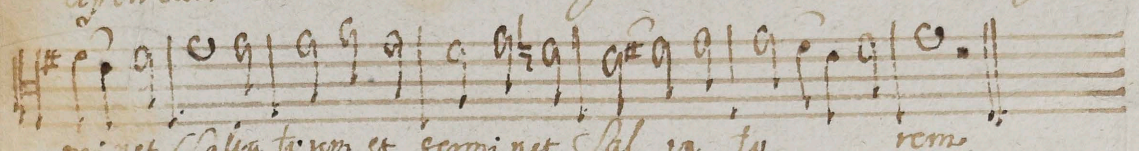 mi net Salva to rem et germi net Sal va to rem